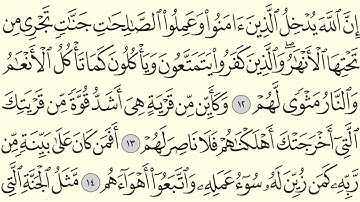 إِنَّ ٱللَّهَ يُدْخِلُ ٱلَّذِينَ ءَامَنُوا۟ وَعَمِلُوا۟ ٱلصَّٰلِحَٰتِ جَنَّٰتٍ تَجْرِى مِن
تَحْتِهَا ٱلْأَنْهَٰرُ ۖ وَٱلَّذِينَ كَفَرُوا۟ يَتَمَتَّعُونَ وَيَأْكُلُونَ كَمَا تَأْكُلُ ٱلْأَنْعَٰمُ
وَٱلنَّارُ مَثْوًى لَّهُمْ ١٢ وَكَأَيِّن مِّن قَرْيَةٍ هِىَ أَشَدُّ قُوَّةً مِّن قَرْيَتِكَ
ٱلَّتِىٓ أَخْرَجَتْكَ أَهْلَكْنَٰهُمْ فَلَا نَاصِرَ لَهُمْ ١٣ أَفَمَن كَانَ عَلَىٰ بَيِّنَةٍ مِّن
رَّبِّهِۦ كَمَن زُيِّنَ لَهُۥ سُوٓءُ عَمَلِهِۦ وَٱتَّبَعُوٓا۟ أَهْوَآءَهُم ١٤ مَّثَلُ ٱلْجَنَّةِ ٱلَّتِى